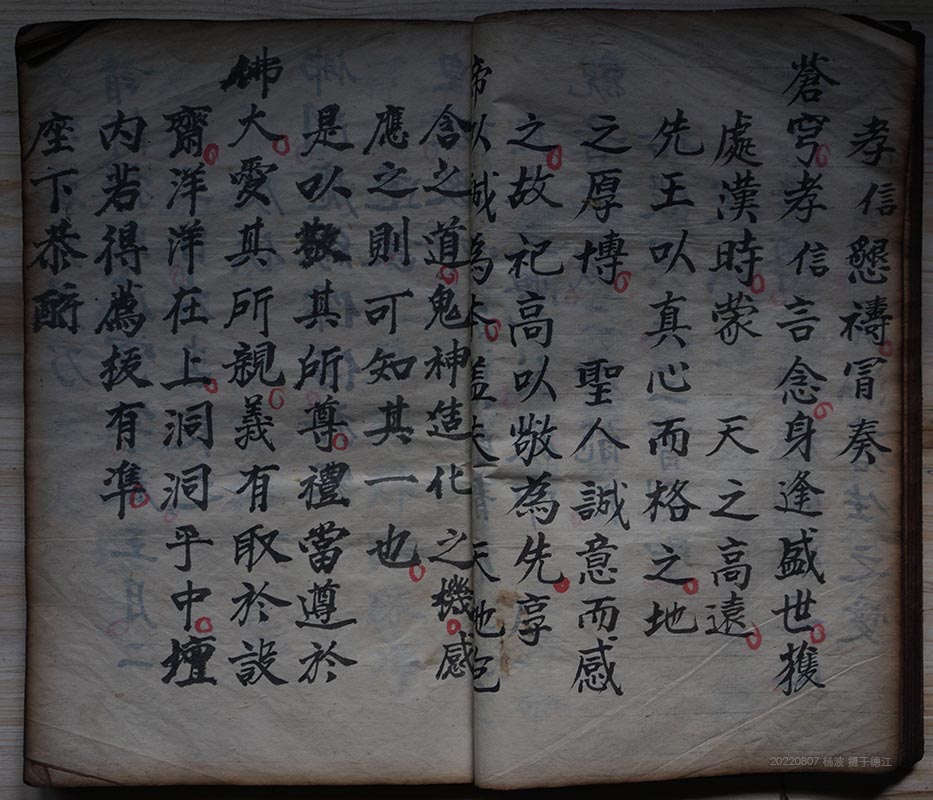 孝信懇禱冒奏
蒼穹孝信言念身逢盛世獲
處漢時蒙 天之高遠
先王以真心而格之地
之厚博 聖人誠意而感
之故祀高以敬為先享
帝以誠為本 夫天地包
含之道鬼神造化之機感
應之則可知其一也
是以敬其所尊禮當遵於
佛大愛其所親義有取於設
齋洋洋在上洞洞乎中壇
内若得薦拔有凖
座下恭酧
20220807 杨波 摄于德江